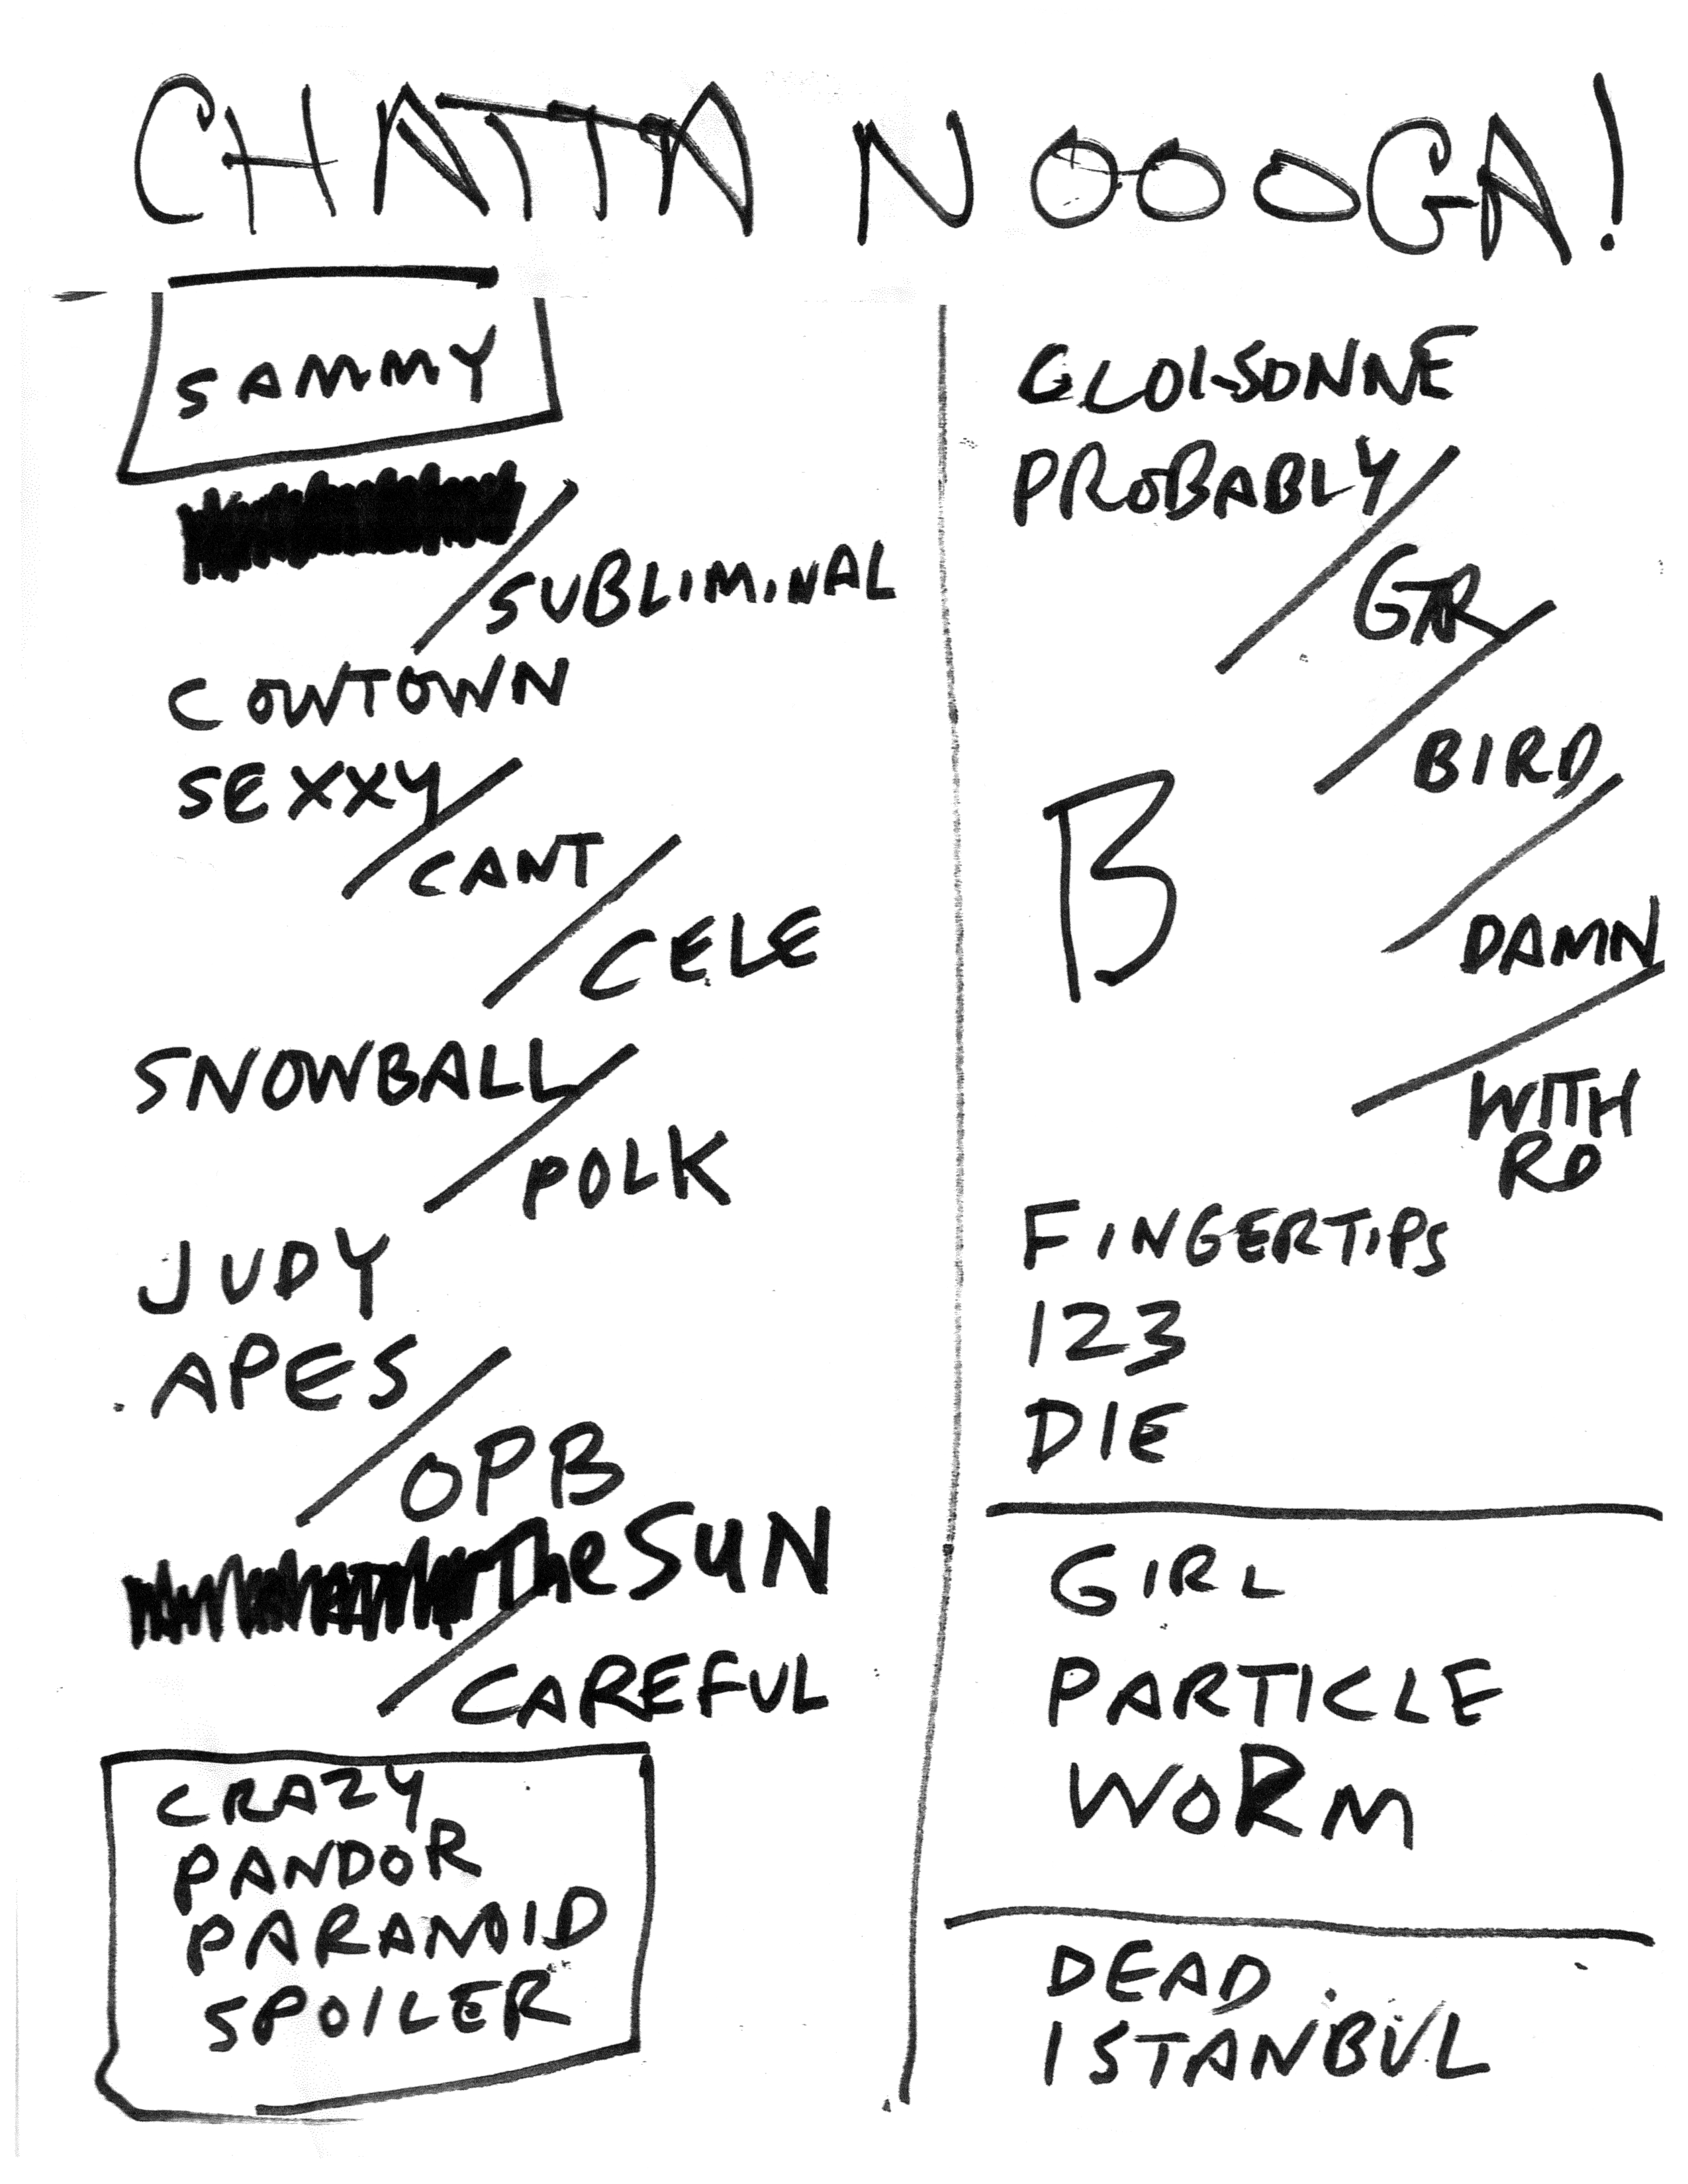 CHATTA NOOOGA!
SAMMY
/SUBLIMINAL
COWTOWN
SEXXY/
CANT/
CELE
SNOWBALL/
POLK
JUDY
APES/
OPB
The SUN
/CAREFUL
CRAZY
PANDOR
PARANOID
SPOILER
CLOISONNE
PROBABLY/
BIRD/
B
DAMN/
WITH
RD
FINGERTIPS
123
DIE
GIRL
PARTICLE
WORM
DEAD
ISTANBUL